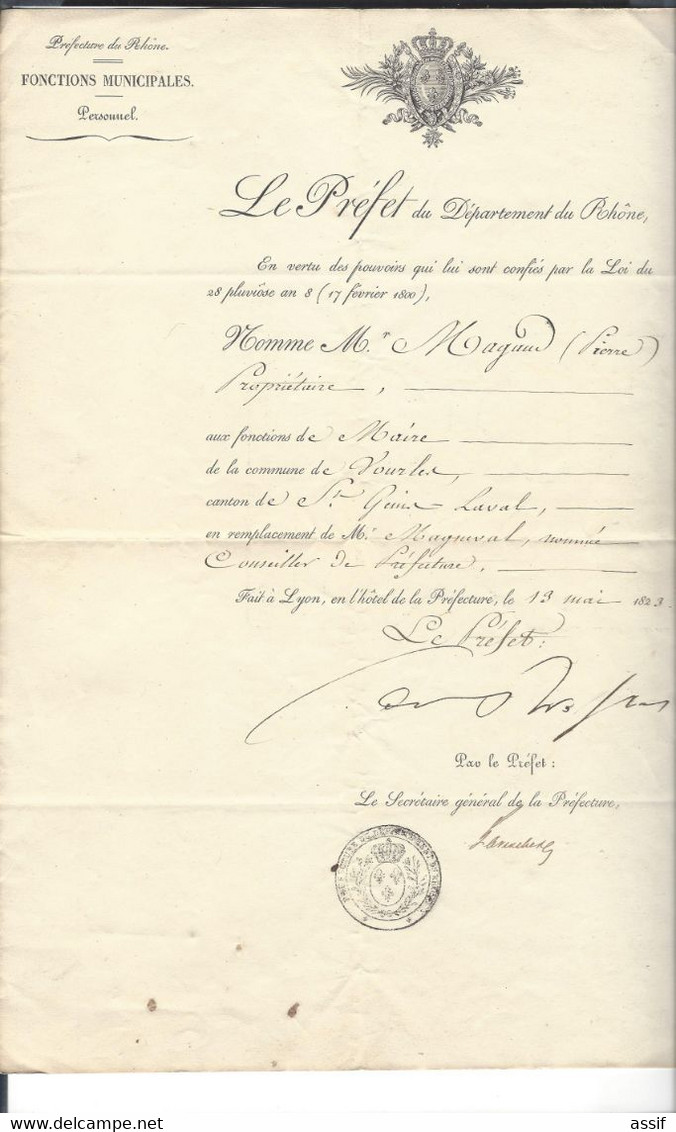 Préfecture du Rhône.
FONCTIONS MUNICIPALES.
Personnel.
Le Préfet du Département du Rhône,
En vertu des pouvoirs qui lui sont confiés par la Loi du
28 pluviôse an 8 (17 février 1800),
Nomme M.r Magaud (Pierre)
Propriétaire,
aux fonctions de Maire
de la commune de Vourles,
canton de St. Genis Laval,
en remplacement de Mr. Magneval, nommé
Conseiller de Préfecture,
Fait à Lyon, en l'hôtel de la Préfecture, le 13 mai 1823.
Le Préfet:
Par le Préfet:
Le Secrétaire général de la Préfecture,
assif